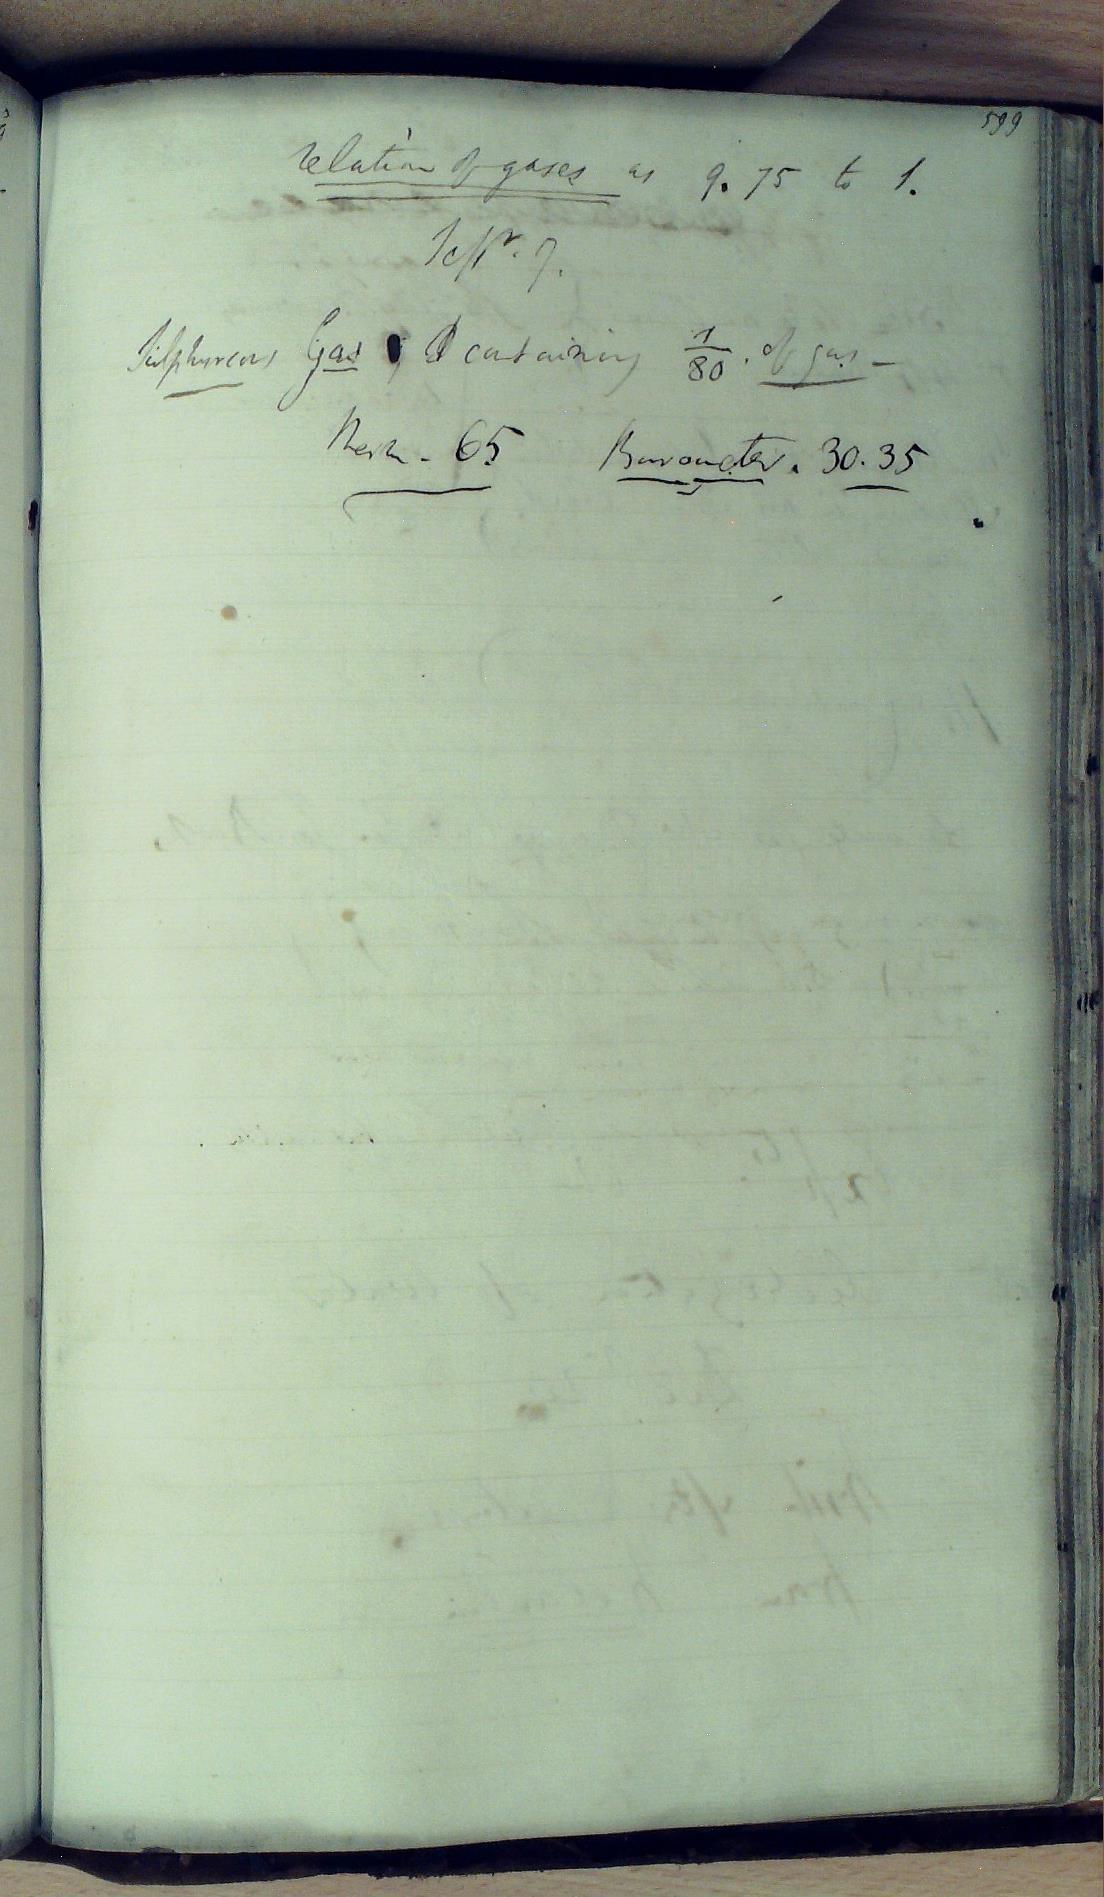 599
relation of gases as 9.75 to 1.
Septr. 7.
Sulphureous Gas containing 1/80. of gas -
Ther. - 65 Barometer. 30.35